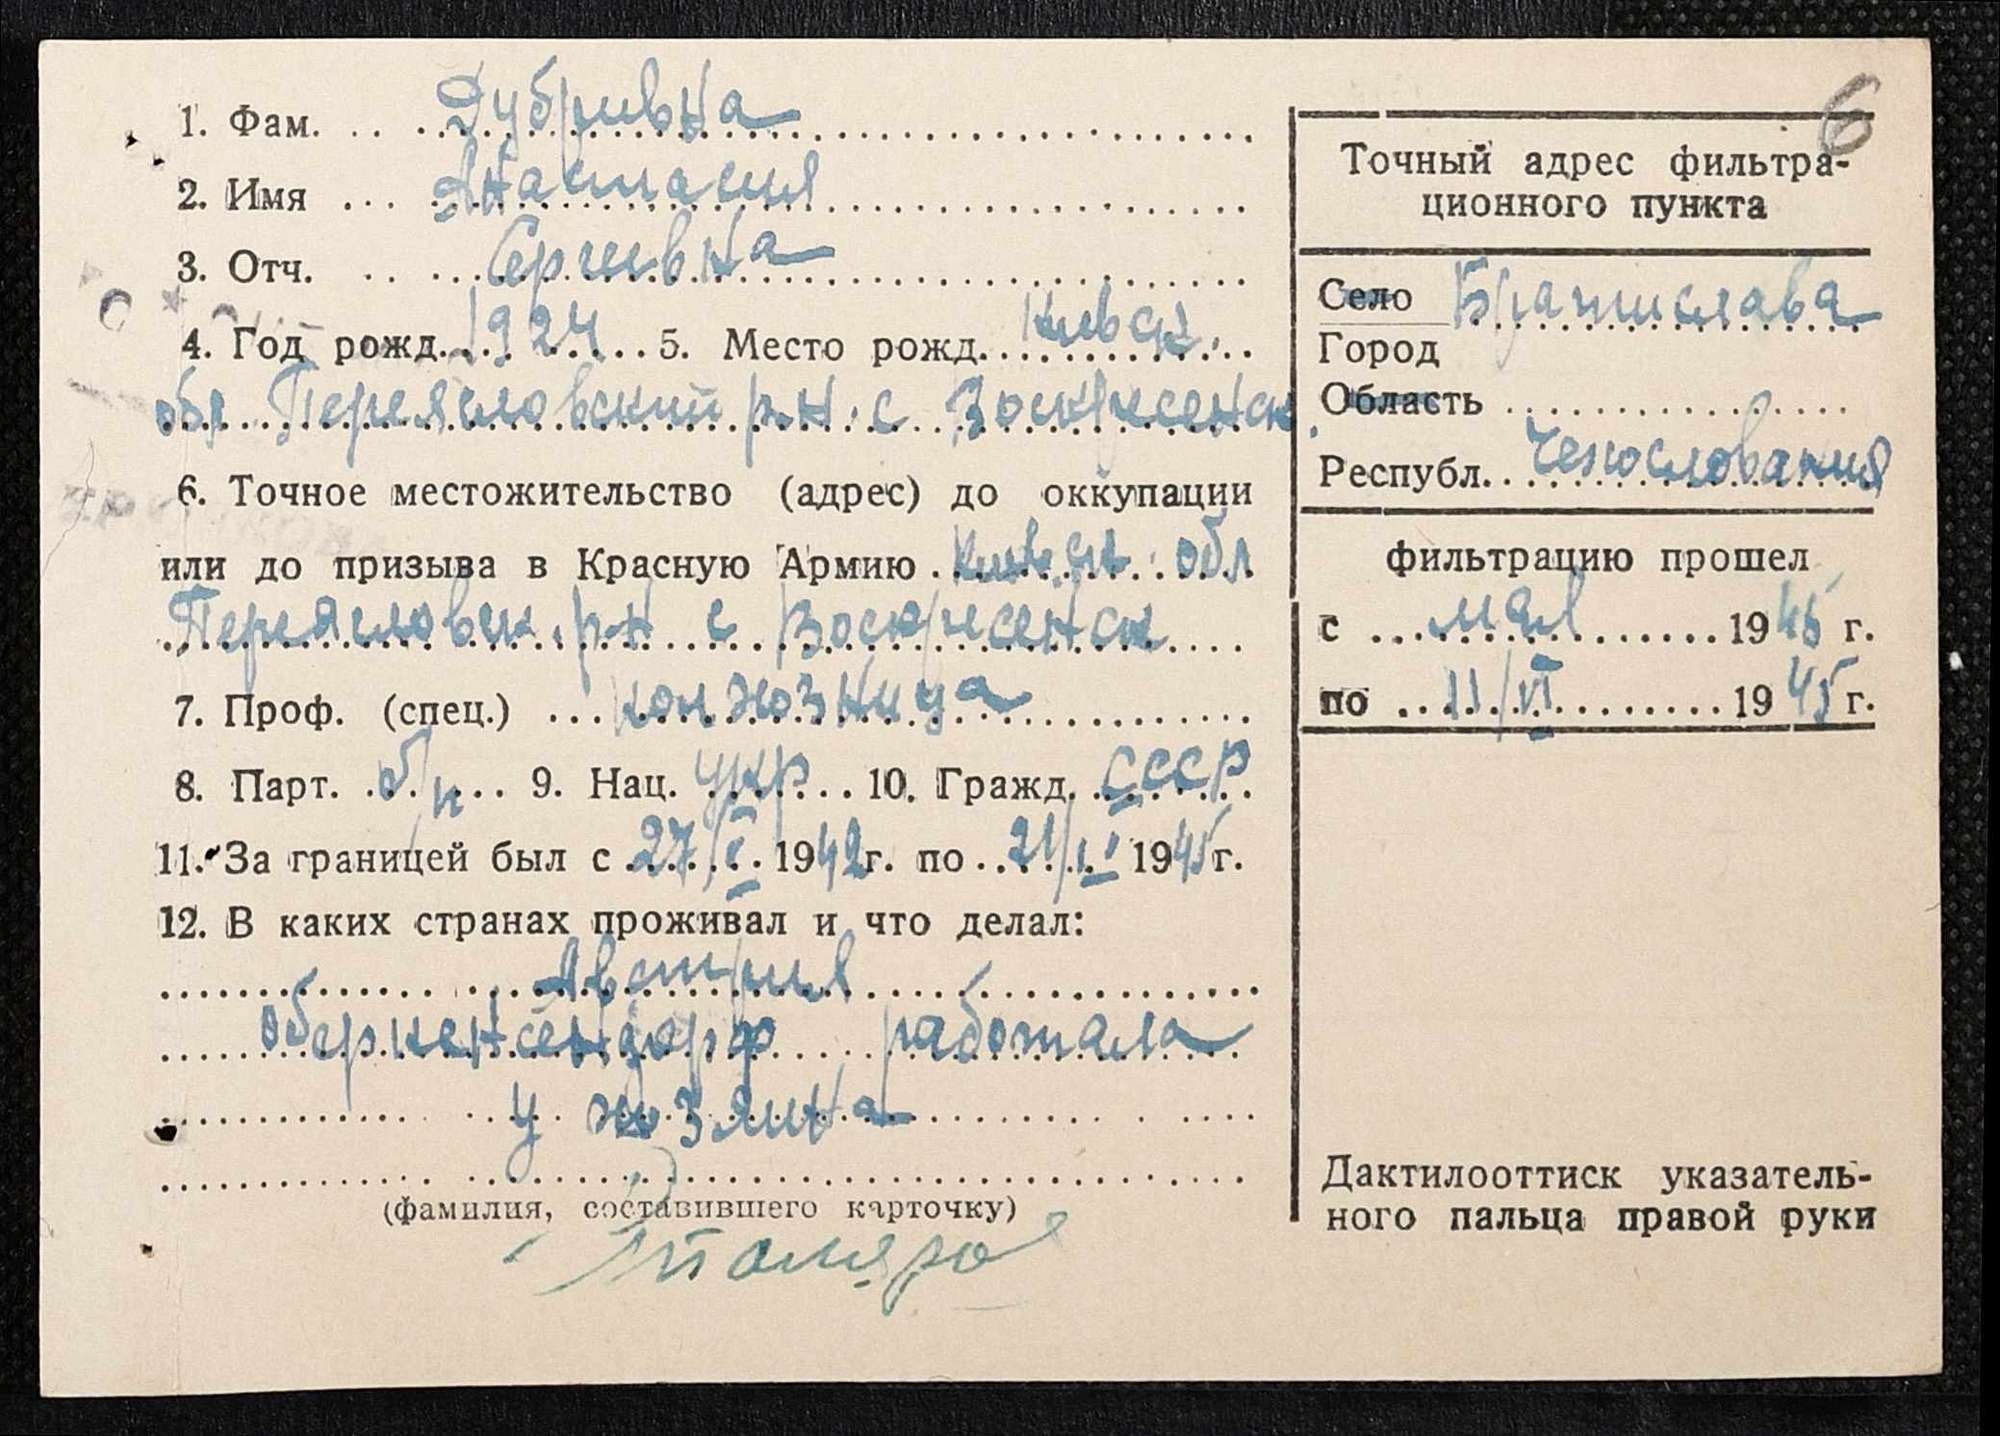 1. Фам. Дубривна
2. Имя Анастасия
3. Отч. Сергиевна
4. Год рожд. 1924 5. Место рожд. Киевск.
обл Переясловский р-н. с Воскресенск.
6. Точное местожительство (адрес) до оккупации
или до призыва в Красную Армию Киевск. обл
Переясловск. р-н с Воскресенск
7. Проф. (спец.) колхозница
8. Парт. б/п 9. Нац. укр 10. Гражд. СССР
11. За границей был с 27/V 1942 г. по 21/ 1945 г.
12. В каких странах проживал и что делал:
Австрия
работала
у хозяина
(фамилия, составившего карточку)
6
Точный адрес фильтра-
ционного пункта
Село Братислава
Город
Область
Республ. Чехословакия
фильтрацию прошел
с мая 1945 г.
по 11/VI 1945 г.
Дактилооттиск указатель-
ного пальца правой руки